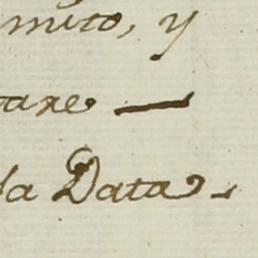 mito, y
taxe —
la Data.